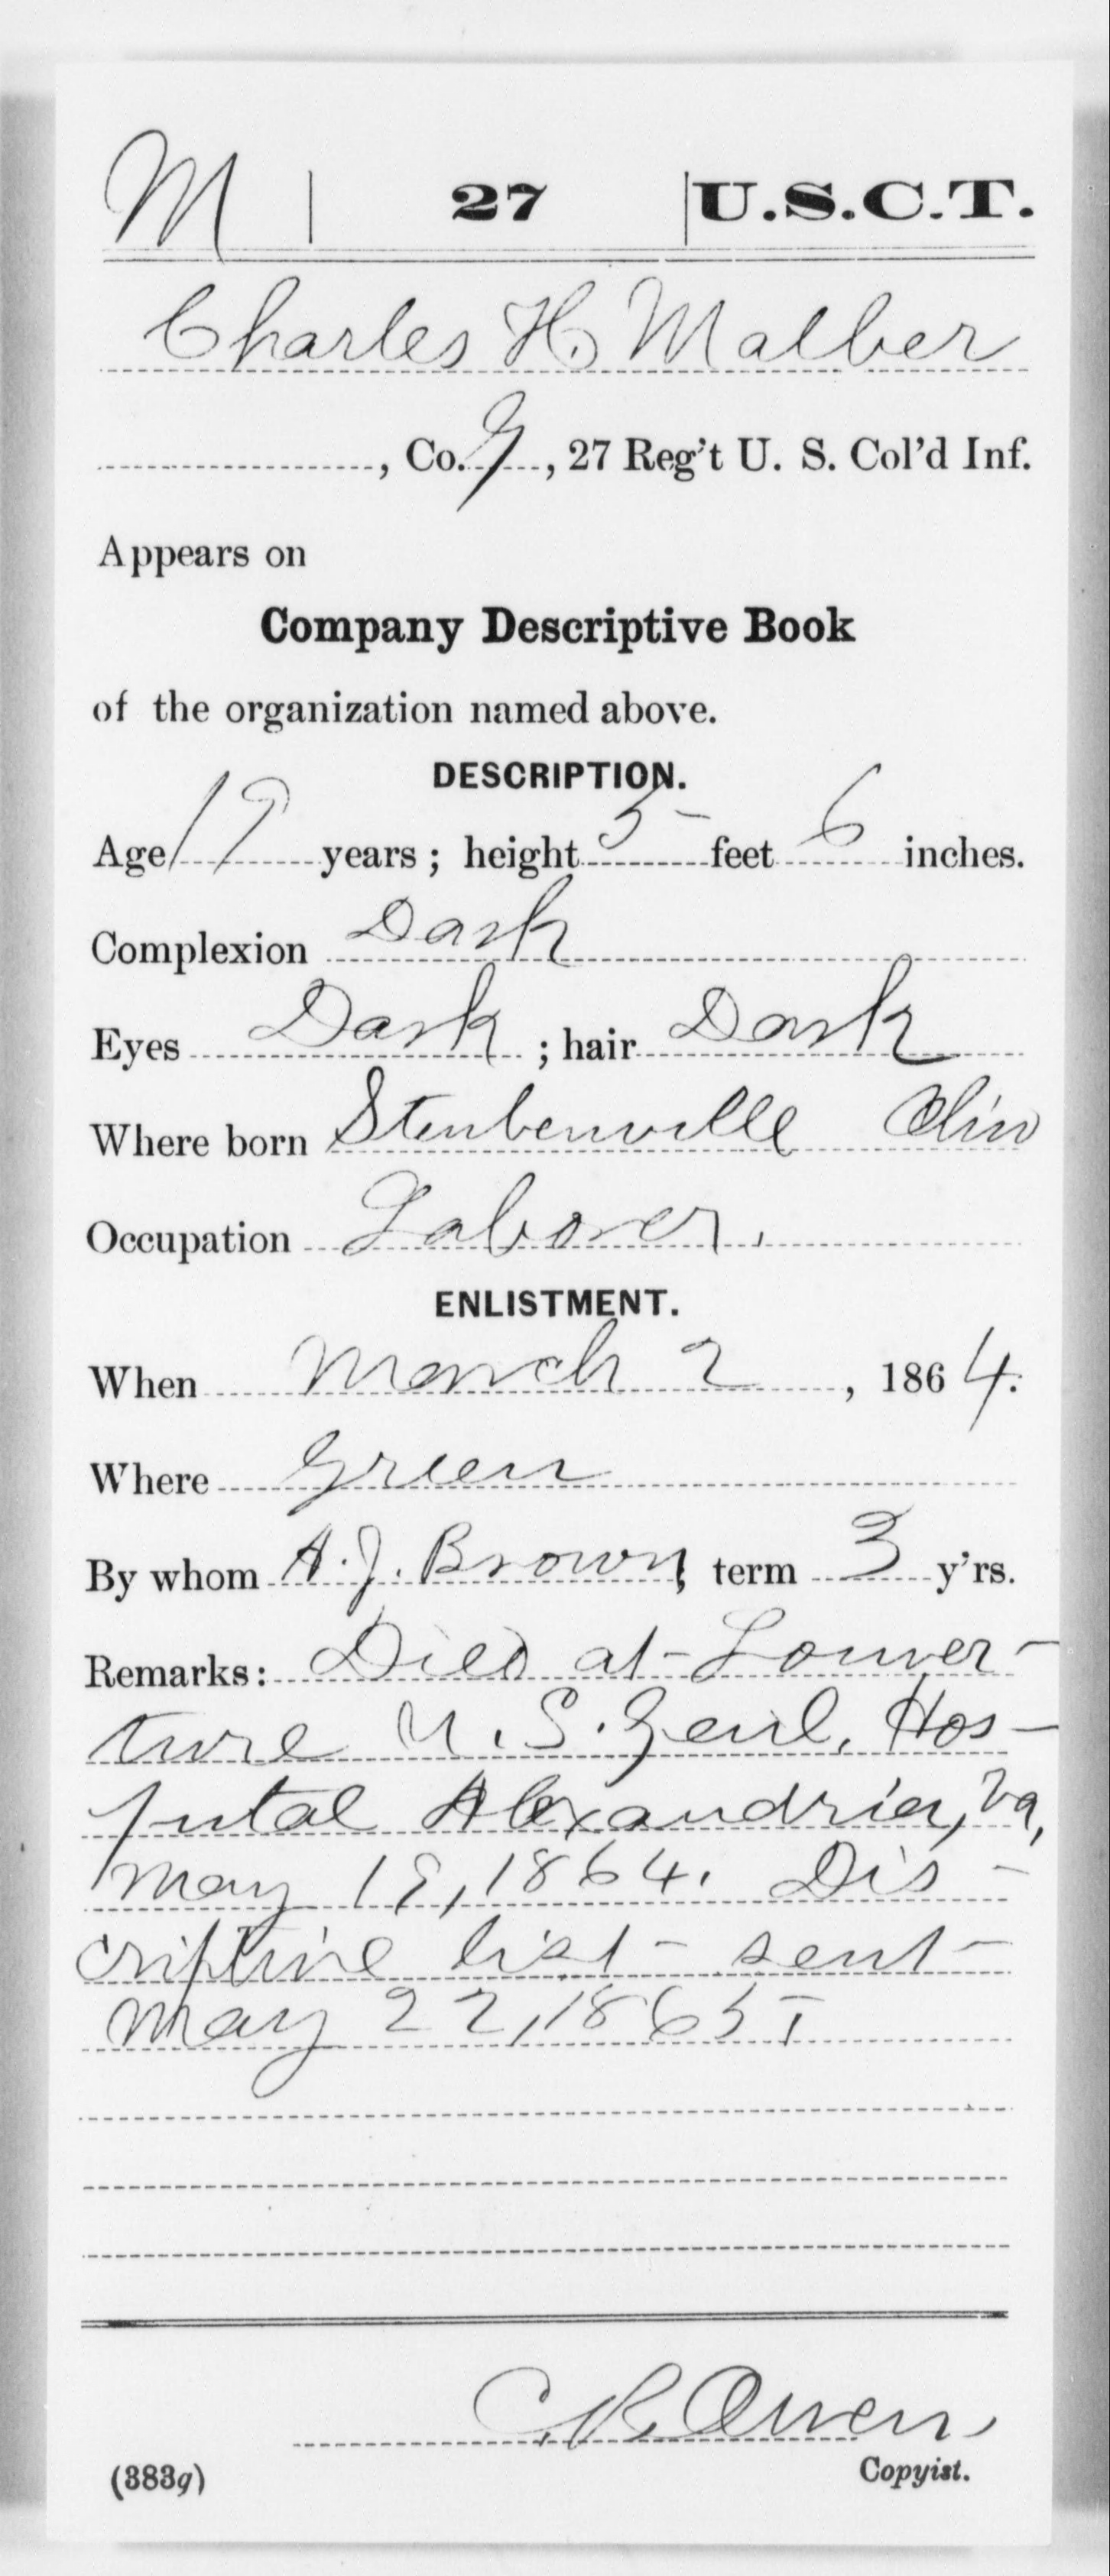 M | 27 | U.S.C.T.
Charles H. Malber
, Co. G, 27 Reg't U. S. Col'd Inf.
Appears on
Company Descriptive Book
of the organization named above.
DESCRIPTION.
Age 19 years; height 5 feet 6 inches.
Complexion Dark
Eyes Dark; hair Dark
Where born Steubenville Ohio
Occupation Laborer.
ENLISTMENT.
When March 2, 1864.
Where Green
By whom A. J. Brown, term 3 y'rs.
Remarks: Died at Louver-
ture U. S. Genl. Hos-
pital Alexandria, Va,
May 19, 1864. Dis-
criptive list sent
May 22, 1865
C. R. Owen,
(383g) Copyist.